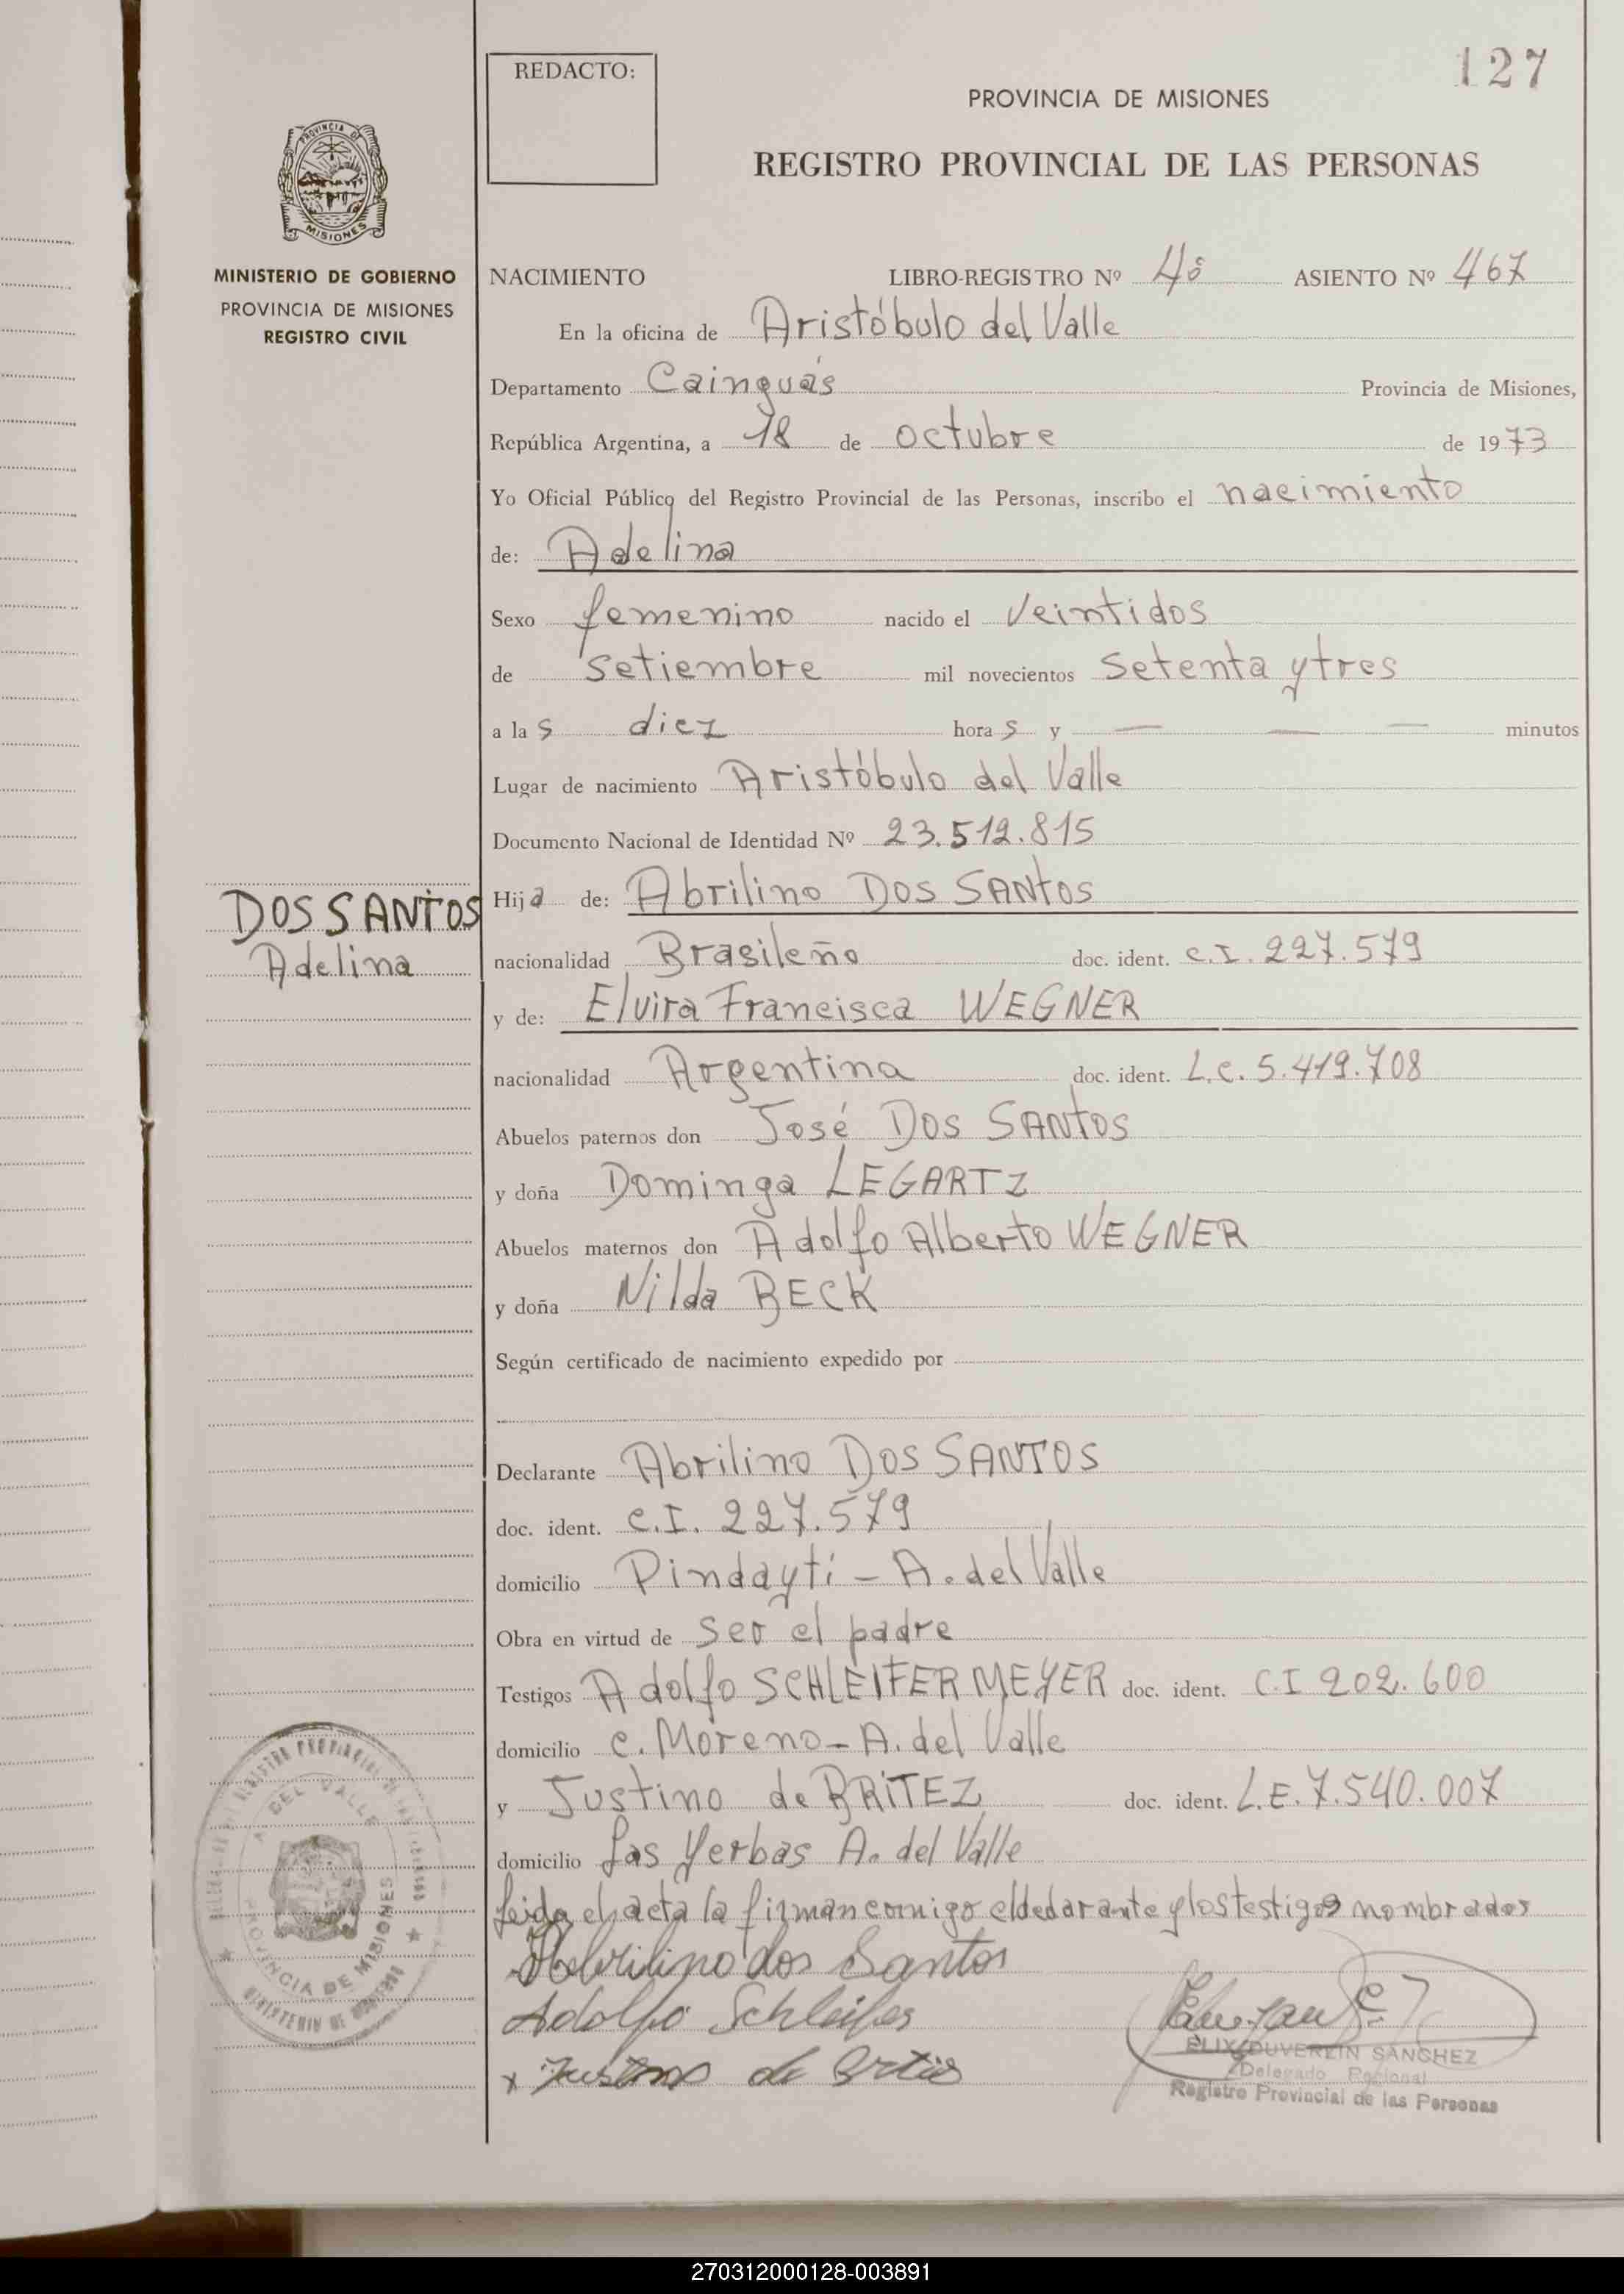 127
REDACTO:
PROVINCIA DE MISIONES
REGISTRO PROVINCIAL DE LAS PERSONAS
PROVINCIA DE
MISIONES
MINISTERIO DE GOBIERNO
PROVINCIA DE MISIONES
REGISTRO CIVIL
NACIMIENTO LIBRO-REGISTRO Nº 4º ASIENTO Nº 467
En la oficina de Aristóbulo del Valle
Departamento Cainguás Provincia de Misiones,
República Argentina, a 18 de octubre de 1973
Yo Oficial Público del Registro Provincial de las Personas, inscribo el nacimiento
de: Adelina
Sexo femenino nacido el veintidos
de setiembre mil novecientos setenta y tres
a las diez horas y — — — minutos
Lugar de nacimiento Aristóbulo del Valle
Documento Nacional de Identidad Nº 23.512.815
DOS SANTOS
Adelina
Hija de: Abrilino DOS SANTOS
nacionalidad Brasileño doc. ident. C.I. 227.579
y de: Elvira Francisca WEGNER
nacionalidad Argentina doc. ident. L.C. 5.419.708
Abuelos paternos don José DOS SANTOS
y doña Dominga LEGARTZ
Abuelos maternos don Adolfo Alberto WEGNER
y doña Nilda BECK
Según certificado de nacimiento expedido por
Declarante Abrilino DOS SANTOS
doc. ident. C.I. 227.579
domicilio Pindaytí - A. del Valle
Obra en virtud de ser el padre
Testigos Adolfo SCHLEIFER MEYER doc. ident. C.I 202.600
domicilio C. Moreno - A. del Valle
y Justino de BRITEZ doc. ident. L.E. 7.540.007
domicilio Las Yerbas A. del Valle
Leida el acta la firman conmigo el declarante y los testigos nombrados
Abrilino dos Santos
Adolfo Schleifer
x Justino de
A. DEL VALLE
PROVINCIA DE MISIONES
MINISTERIO DE GOBIERNO
DUVERLIN SANCHEZ
Delegado Regional
Registro Provincial de las Personas
270312000128-003891